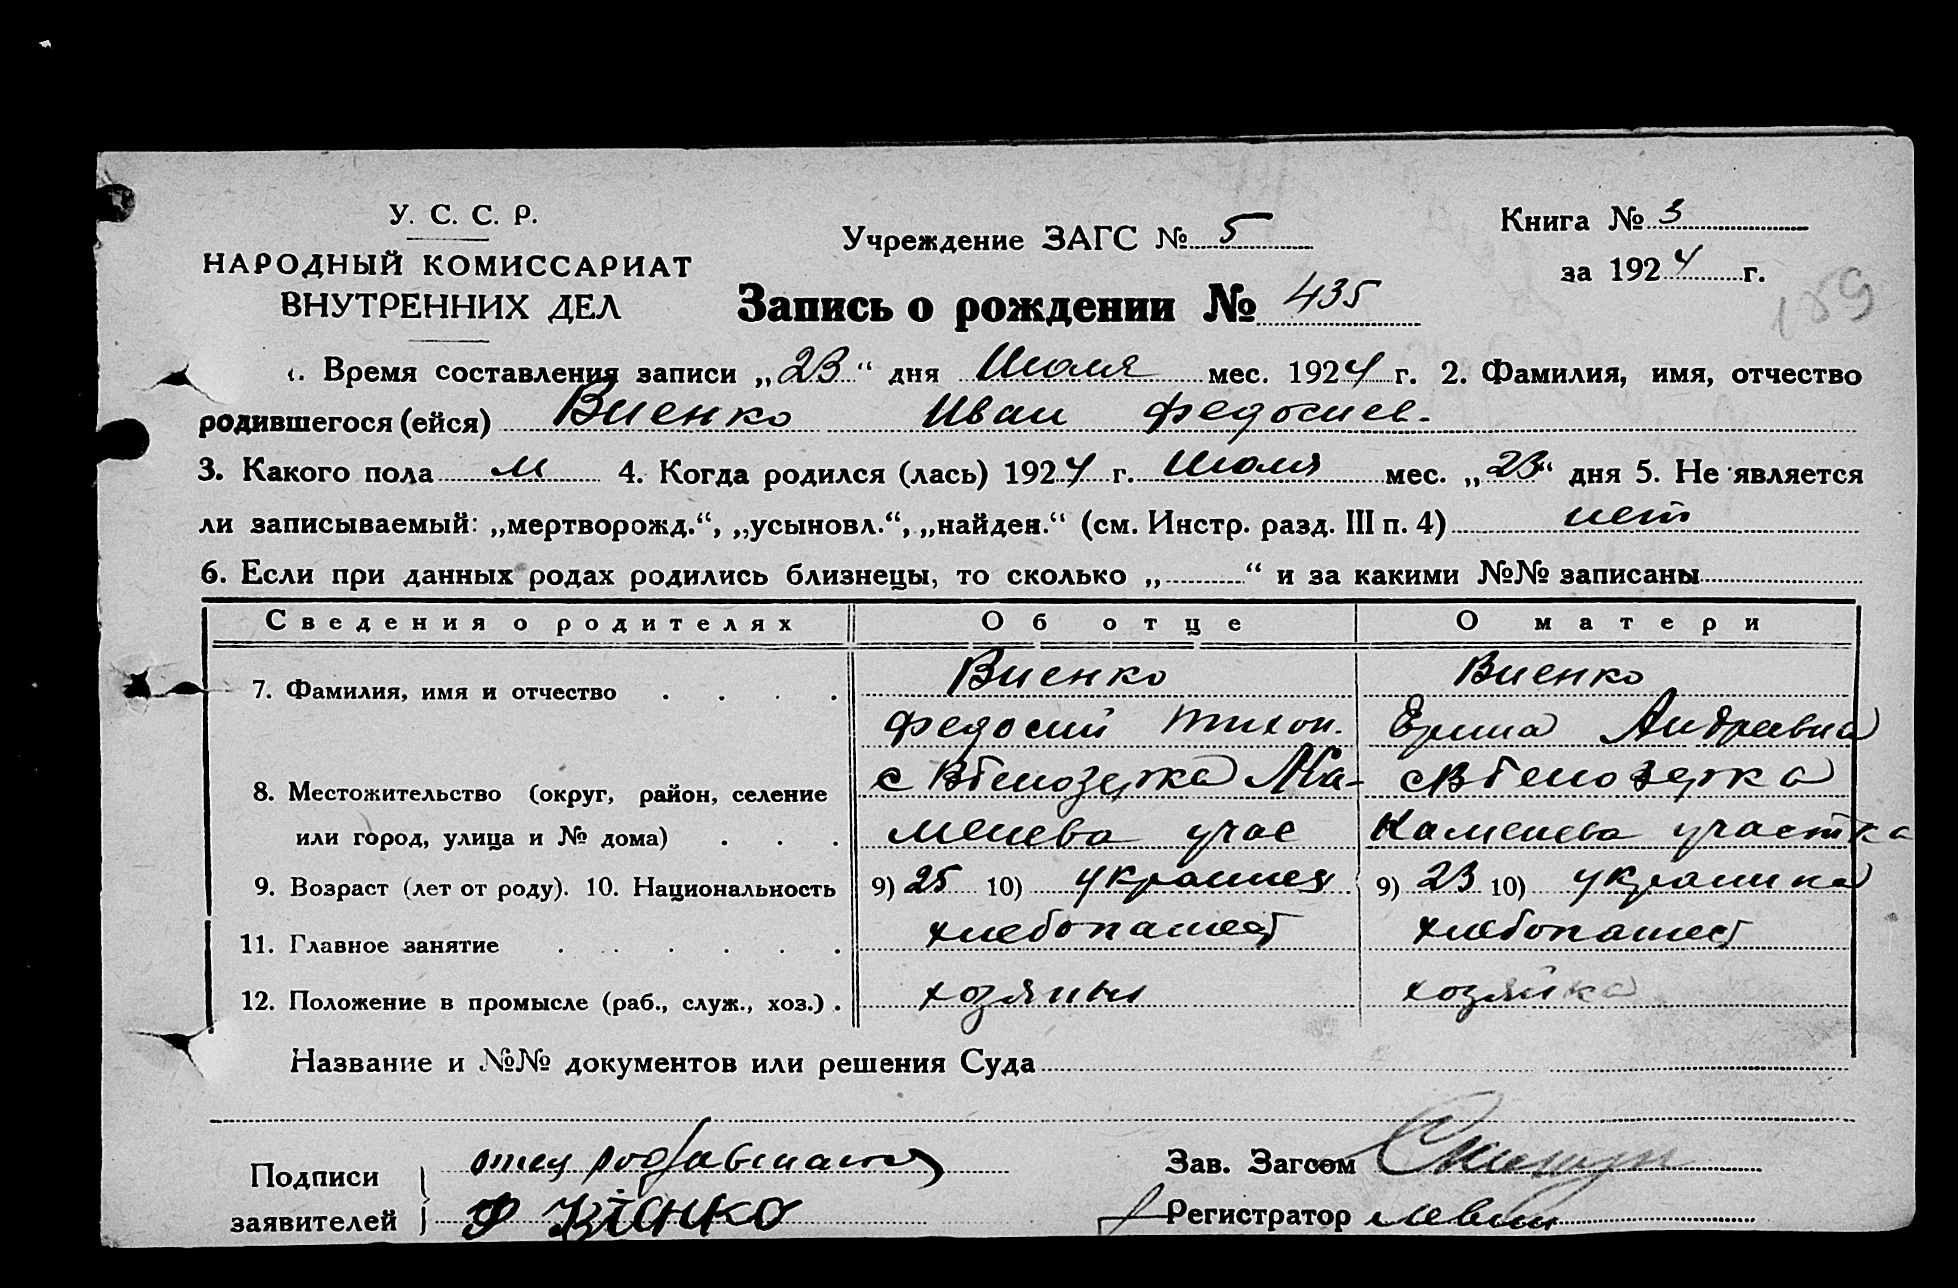 У. С. С. Р.
НАРОДНЫЙ КОМИССАРИАТ
ВНУТРЕННИХ ДЕЛ
Учреждение ЗАГС № 5
Книга № 3
за 1924 г.
189
Запись о рождении № 435
1. Время составления записи „23“ дня Июля мес. 1924 г. 2. Фамилия, имя, отчество
родившегося (ейся) Виенко Иван Федосиев.
3. Какого пола м 4. Когда родился (лась) 1924 г. Июля мес. „23“ дня 5. Не является
ли записываемый: „мертворожд.“, „усыновл.“, „найден.“ (см. Инстр. разд. III п. 4) нет
6. Если при данных родах родились близнецы, то сколько „ “ и за какими №№ записаны
Сведения о родителях Об отце О матери
7. Фамилия, имя и отчество Виенко Виенко
Федосий Тихон. Ерина Андреевна
8. Местожительство (округ, район, селение с Вбелозерка Ка- с Вбелозерка
или город, улица и № дома) менева учас Каменева участка
9. Возраст (лет от роду). 10. Национальность 9) 25 10) украинец 9) 23 10) украинка
11. Главное занятие хлебопашест хлебопашест
12. Положение в промысле (раб., служ., хоз.) хозяин хозяйка
Название и №№ документов или решения Суда
Подписи отец Зав. Загсом
заявителей Ф Регистратор Левин